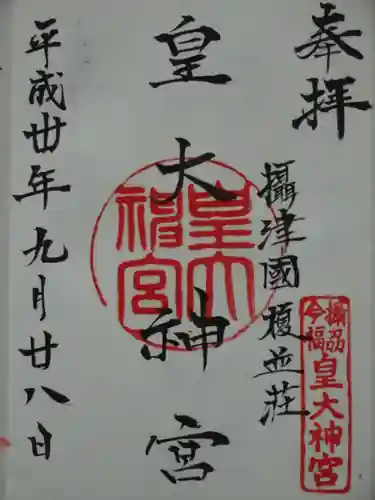 奉拝
攝津國榎並荘
皇大神宮
皇大神宮
平成廿年九月廿八日
攝州
今福
皇大神宮